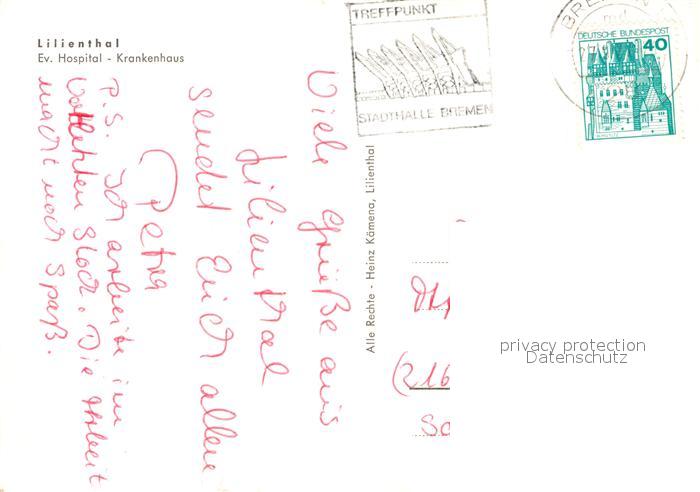 Lilienthal
Ev. Hospital - Krankenhaus
TREFFPUNKT
STADTHALLE BREMEN
DEUTSCHE BUNDESPOST
40
Viele Grüße aus
Lilienthal
sendet Euch allen
Petra
P.S. Ich arbeite im
vorletzten Stock. Die Arbeit
macht noch Spaß.
Alle Rechte - Heinz Kämena, Lilienthal
(216
privacy protection
Datenschutz